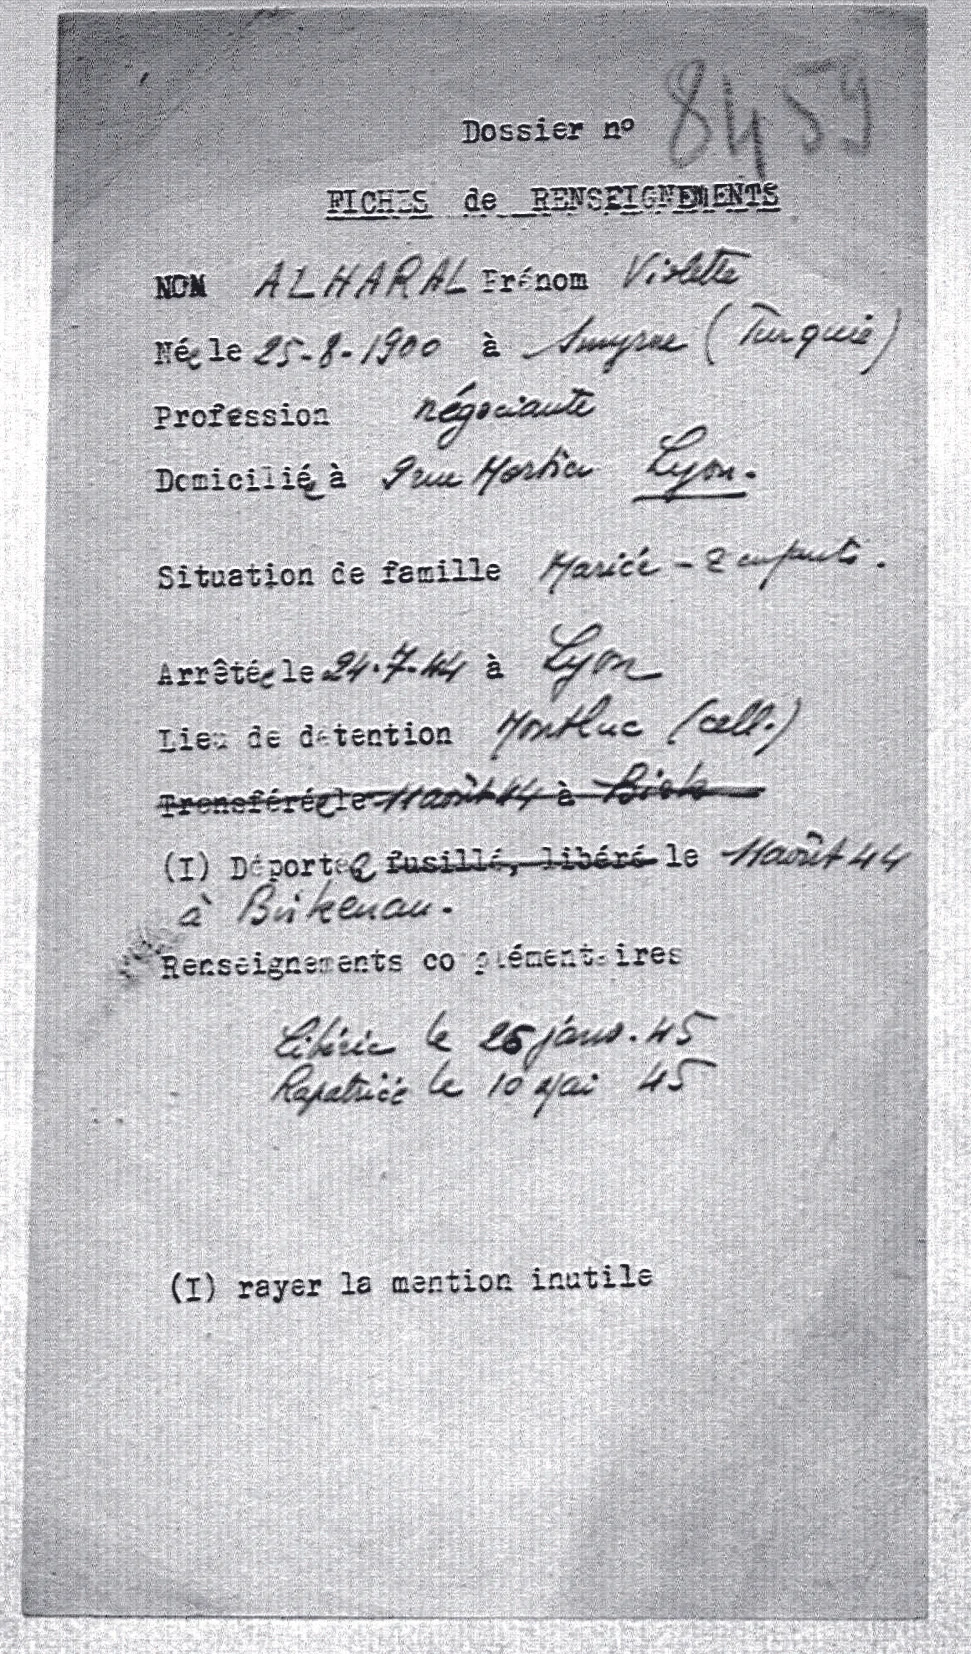 Dossier n° 8459
FICHES de RENSEIGNEMENTS
NOM ALHARAL Prénom Violette
Née le 25-8-1900 à Smyrne (Turquie)
Profession négociante
Domiciliée à 9 rue Mortier Lyon.
Situation de famille Mariée - 2 enfants.
Arrêtée le 24.7.44 à Lyon
Lieu de détention Montluc (cell.)
Transférée le 11 août 44 à Birk
(I) Déportée fusillé, libéré le 11 août 44
à Birkenau.
Renseignements complémentaires
Libérée le 26 janv. 45
Rapatriée le 10 Mai 45
(I) rayer la mention inutile